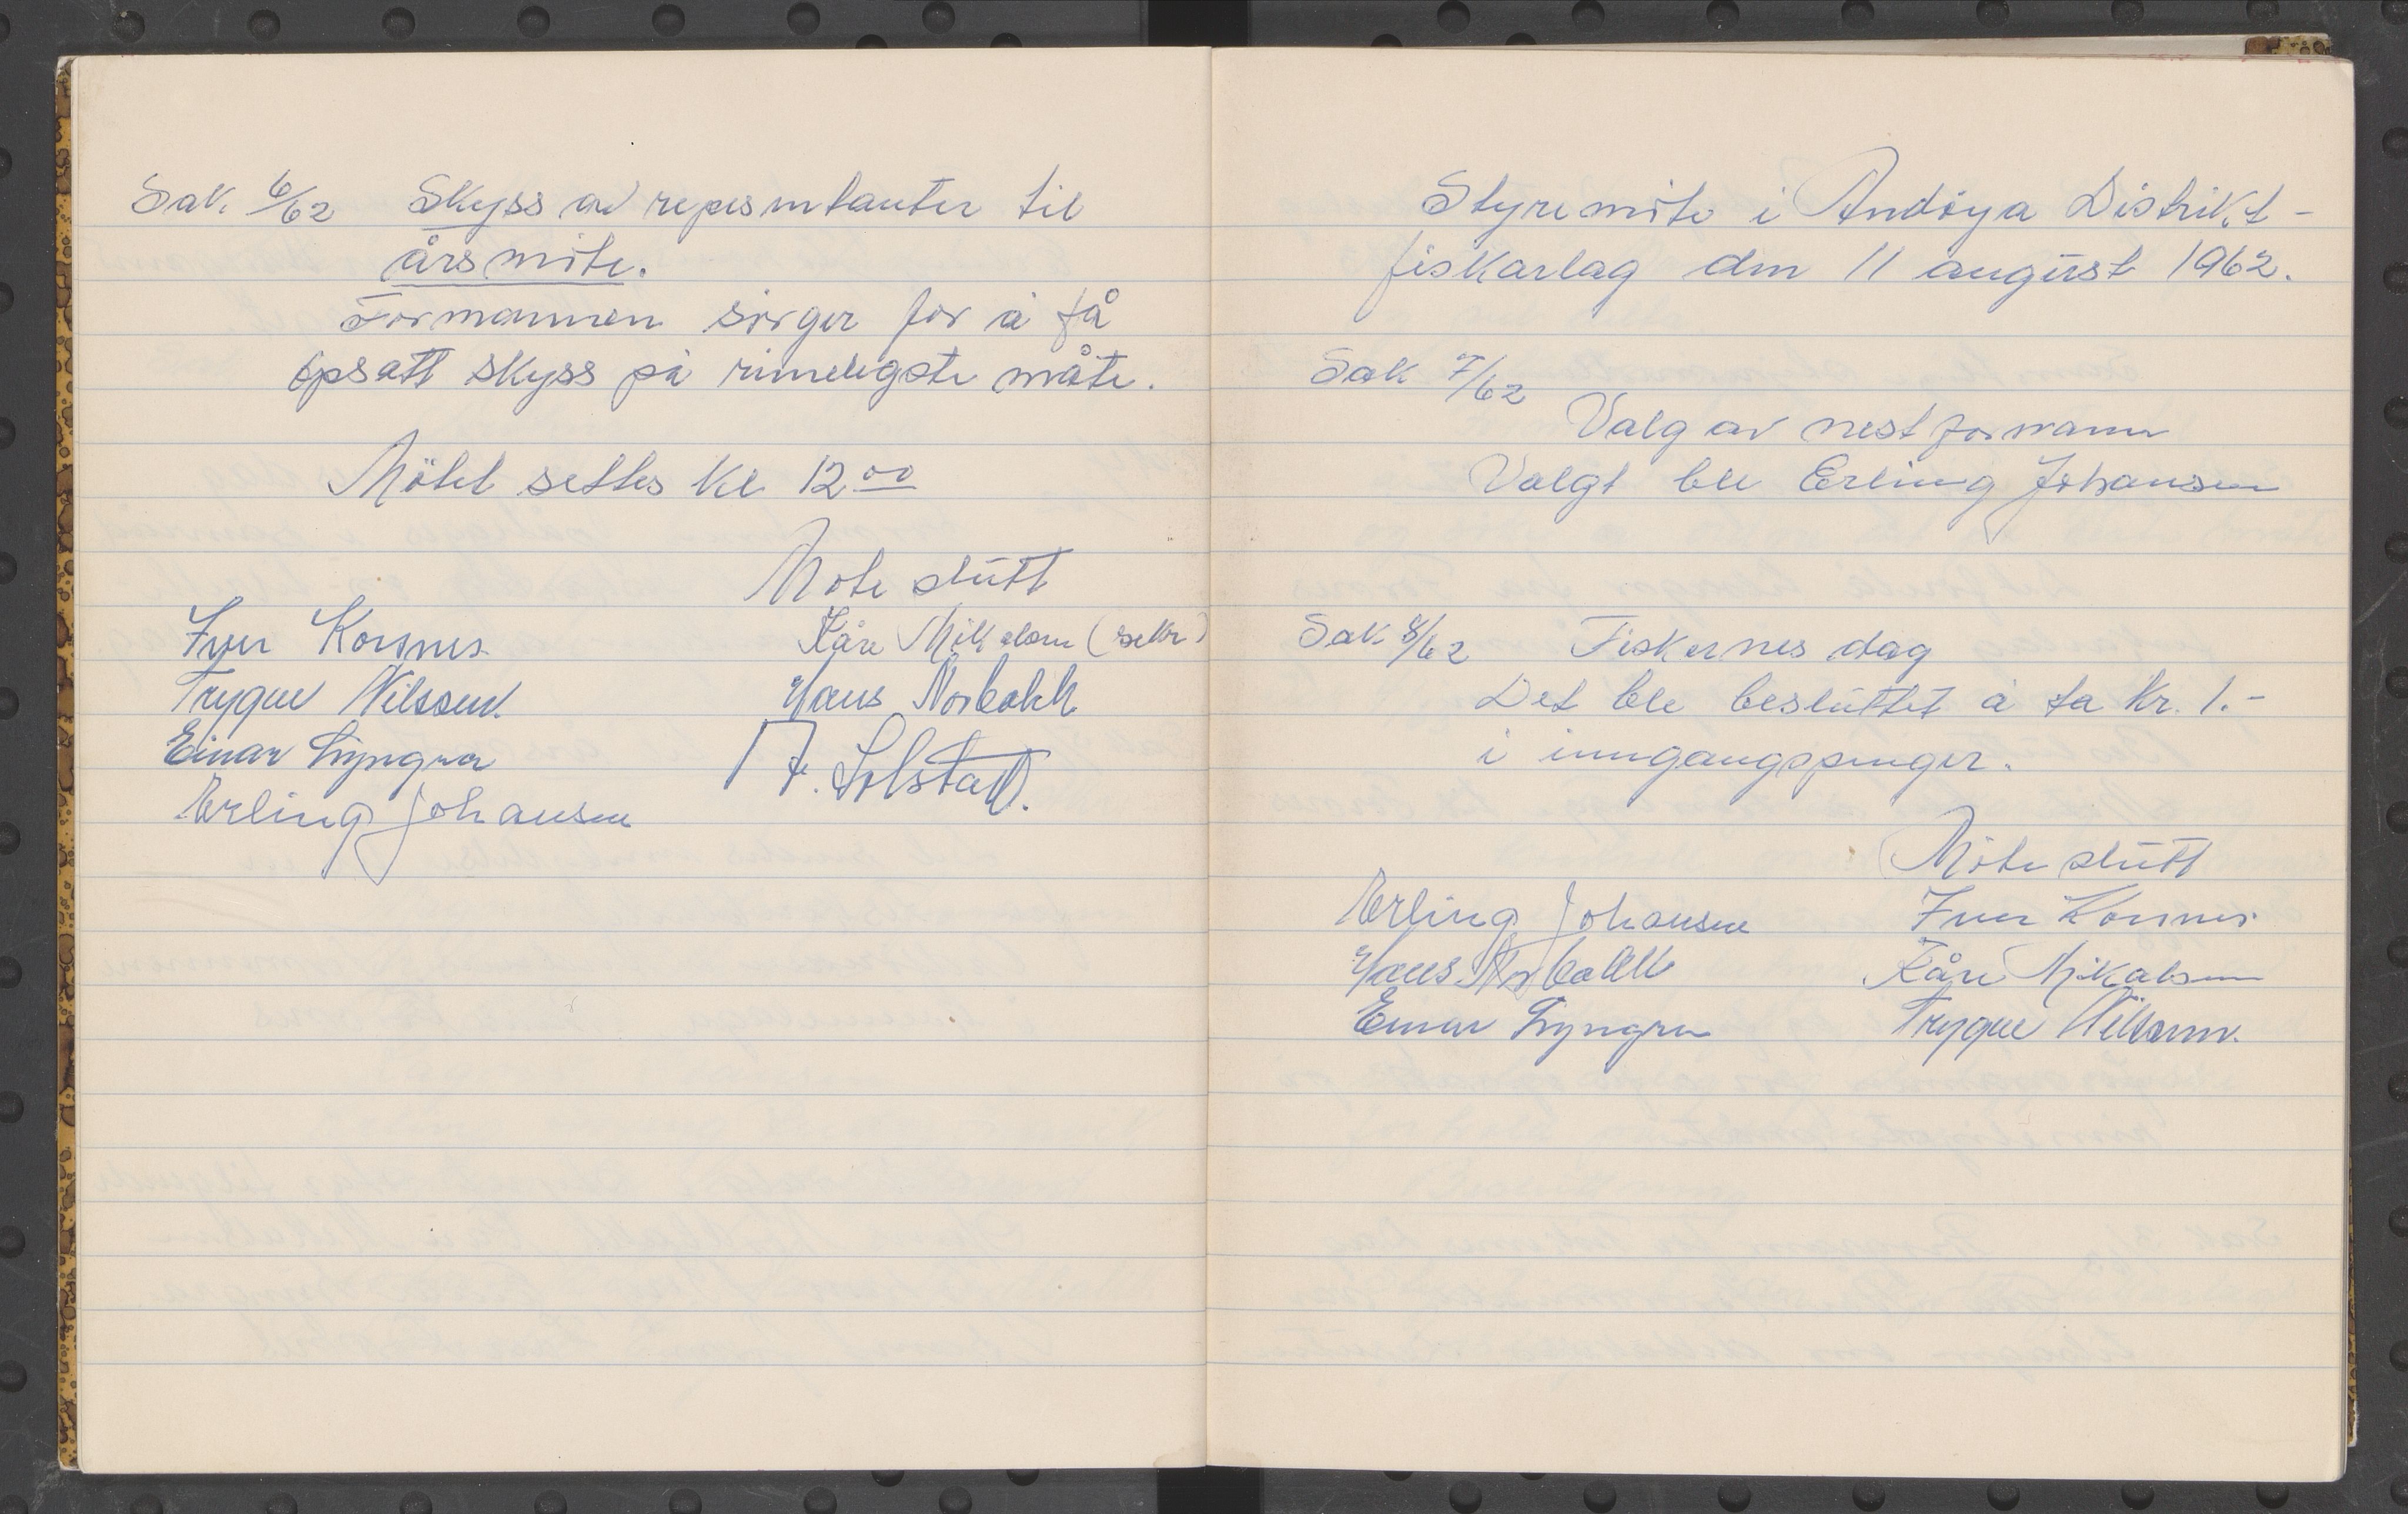 Sak. 6/62 Skyss av repesentanter til
årsmöte.
Formannen sörger for å få
opsatt skyss på rimeligste måte.
Mötet settes kl 12 00
Möte slutt
Iver Korsnes
Kåre Mikalsen (sekr)
Trygve Nilssen.
Hans Norbakk
Einar Lyngra
F. Solstad.
Erling Johansen
Styremöte i Andöya Distrikt-
fiskarlag den 11 august 1962.
Sak 7/62
Valg av nestformann
Valgt ble Erling Johansen
Sak 8/62 Fiskernes dag
Det ble besluttet å ta Kr. 1.-
i inngangspenger.
Möte slutt
Erling Johansen
Iver Korsnes
Hans Norbakk
Kåre Mikalsen
Einar Lyngra
Trygve Nilssen.